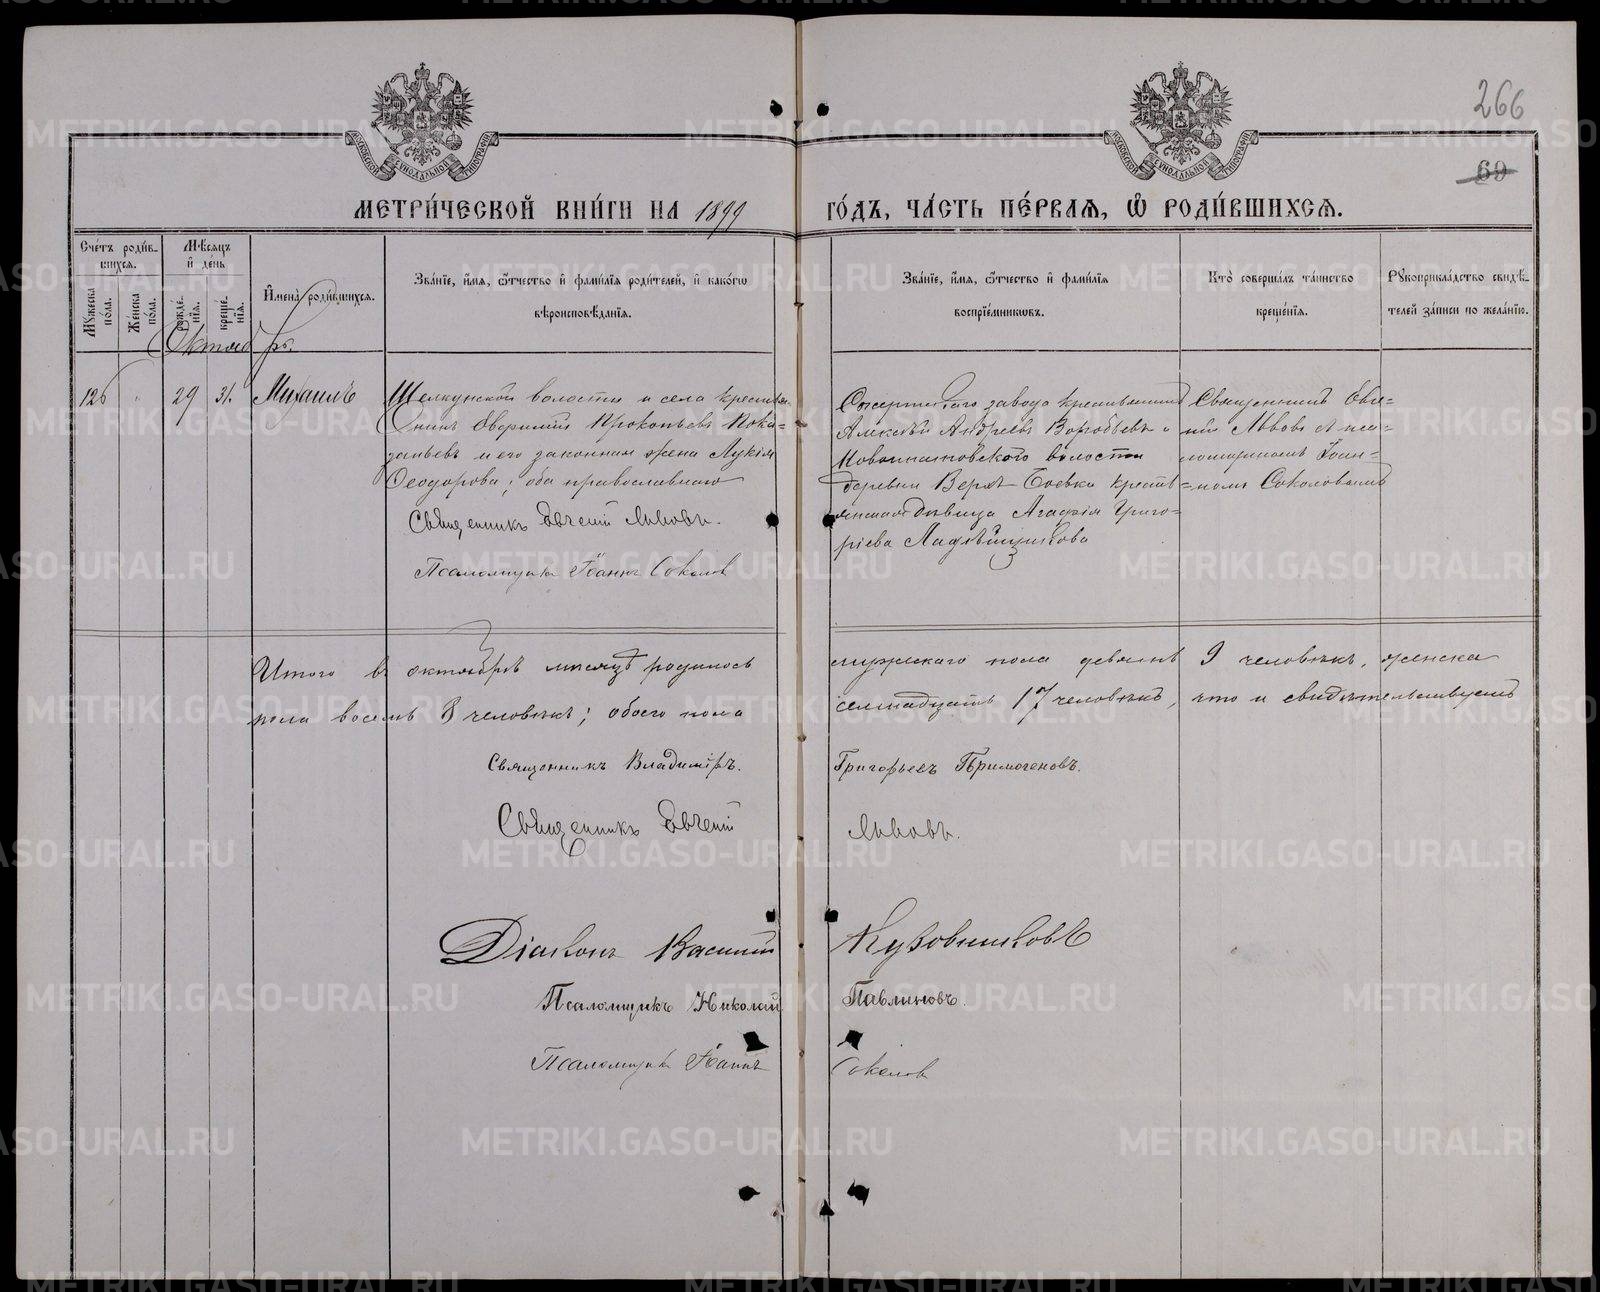 266
69
МОСКОВСКОЙ СѴНОДАЛЬНОЙ ТИПОГРАФІИ
МОСКОВСКОЙ СѴНОДАЛЬНОЙ ТИПОГРАФІИ
МЕТРИ́ЧЕСКОЙ КНИ́ГИ НА 1899 ГО́ДЪ, ЧА́СТЬ ПЕ́РВАЯ, Ѡ РОДИ́ВШИХСЯ.
Сче́тъ роди́в-
шихся.
Мꙋ́жеска по́ла.
Же́нска по́ла.
Мѣ́сяцъ
и҆ де́нь
рожде́-нїя.
креще́-нїя.
И҆мена̀ роди́вшихся.
Зва́нїе, и҆́мя, ѻ҆́тчество и҆ фами́лїя роди́телей, и҆ како́гѡ
вѣроисповѣ́данїя.
Зва́нїе, и҆́мя, ѻ҆́тчество и҆ фами́лїя
воспрїе́мникѡвъ.
Кто̀ соверша́лъ та́инство
креще́нїя.
Рꙋкоприкла́дство свидѣ́-
телей за́писи по жела́нїю.
Октябрь.
126 " 29 31. Михаилъ
Щелкунской волости и села крестья-
нинъ Евфимій Прокопьевъ Пока-
заньевъ и его законная жена Лукія
Ѳеодорова; оба православнаго
Священникъ Евгеній Львовъ.
Псаломщикъ Іоаннъ Соколов
Сысертскаго завода крестьянинъ
Алексѣй Андреевъ Воробьевъ и
Новоипатовского волости
деревни Верхъ-Боевки крестья-
янская дѣвица Агафія Григо-
ріева
Священникъ Евге-
ній Львовъ съ пса-
ломщикомъ Іоан-
номъ Соколовымъ
Итого въ октябрѣ мѣсяцѣ родилось мужескаго пола девять 9 человѣкъ, женска
пола восемь 8 человѣкъ; обоего пола семнадцать 17 человѣкъ, что и свидѣтельствуемъ
Священникъ Владиміръ Григорьевъ Примогеновъ.
Священникъ Евгеній Львовъ.
Діаконъ Василій Кузовниковъ
Псаломщикъ Николай Павлиновъ.
Псаломщикъ Іоаннъ Соколов
METRIKI.GASO-URAL.RU